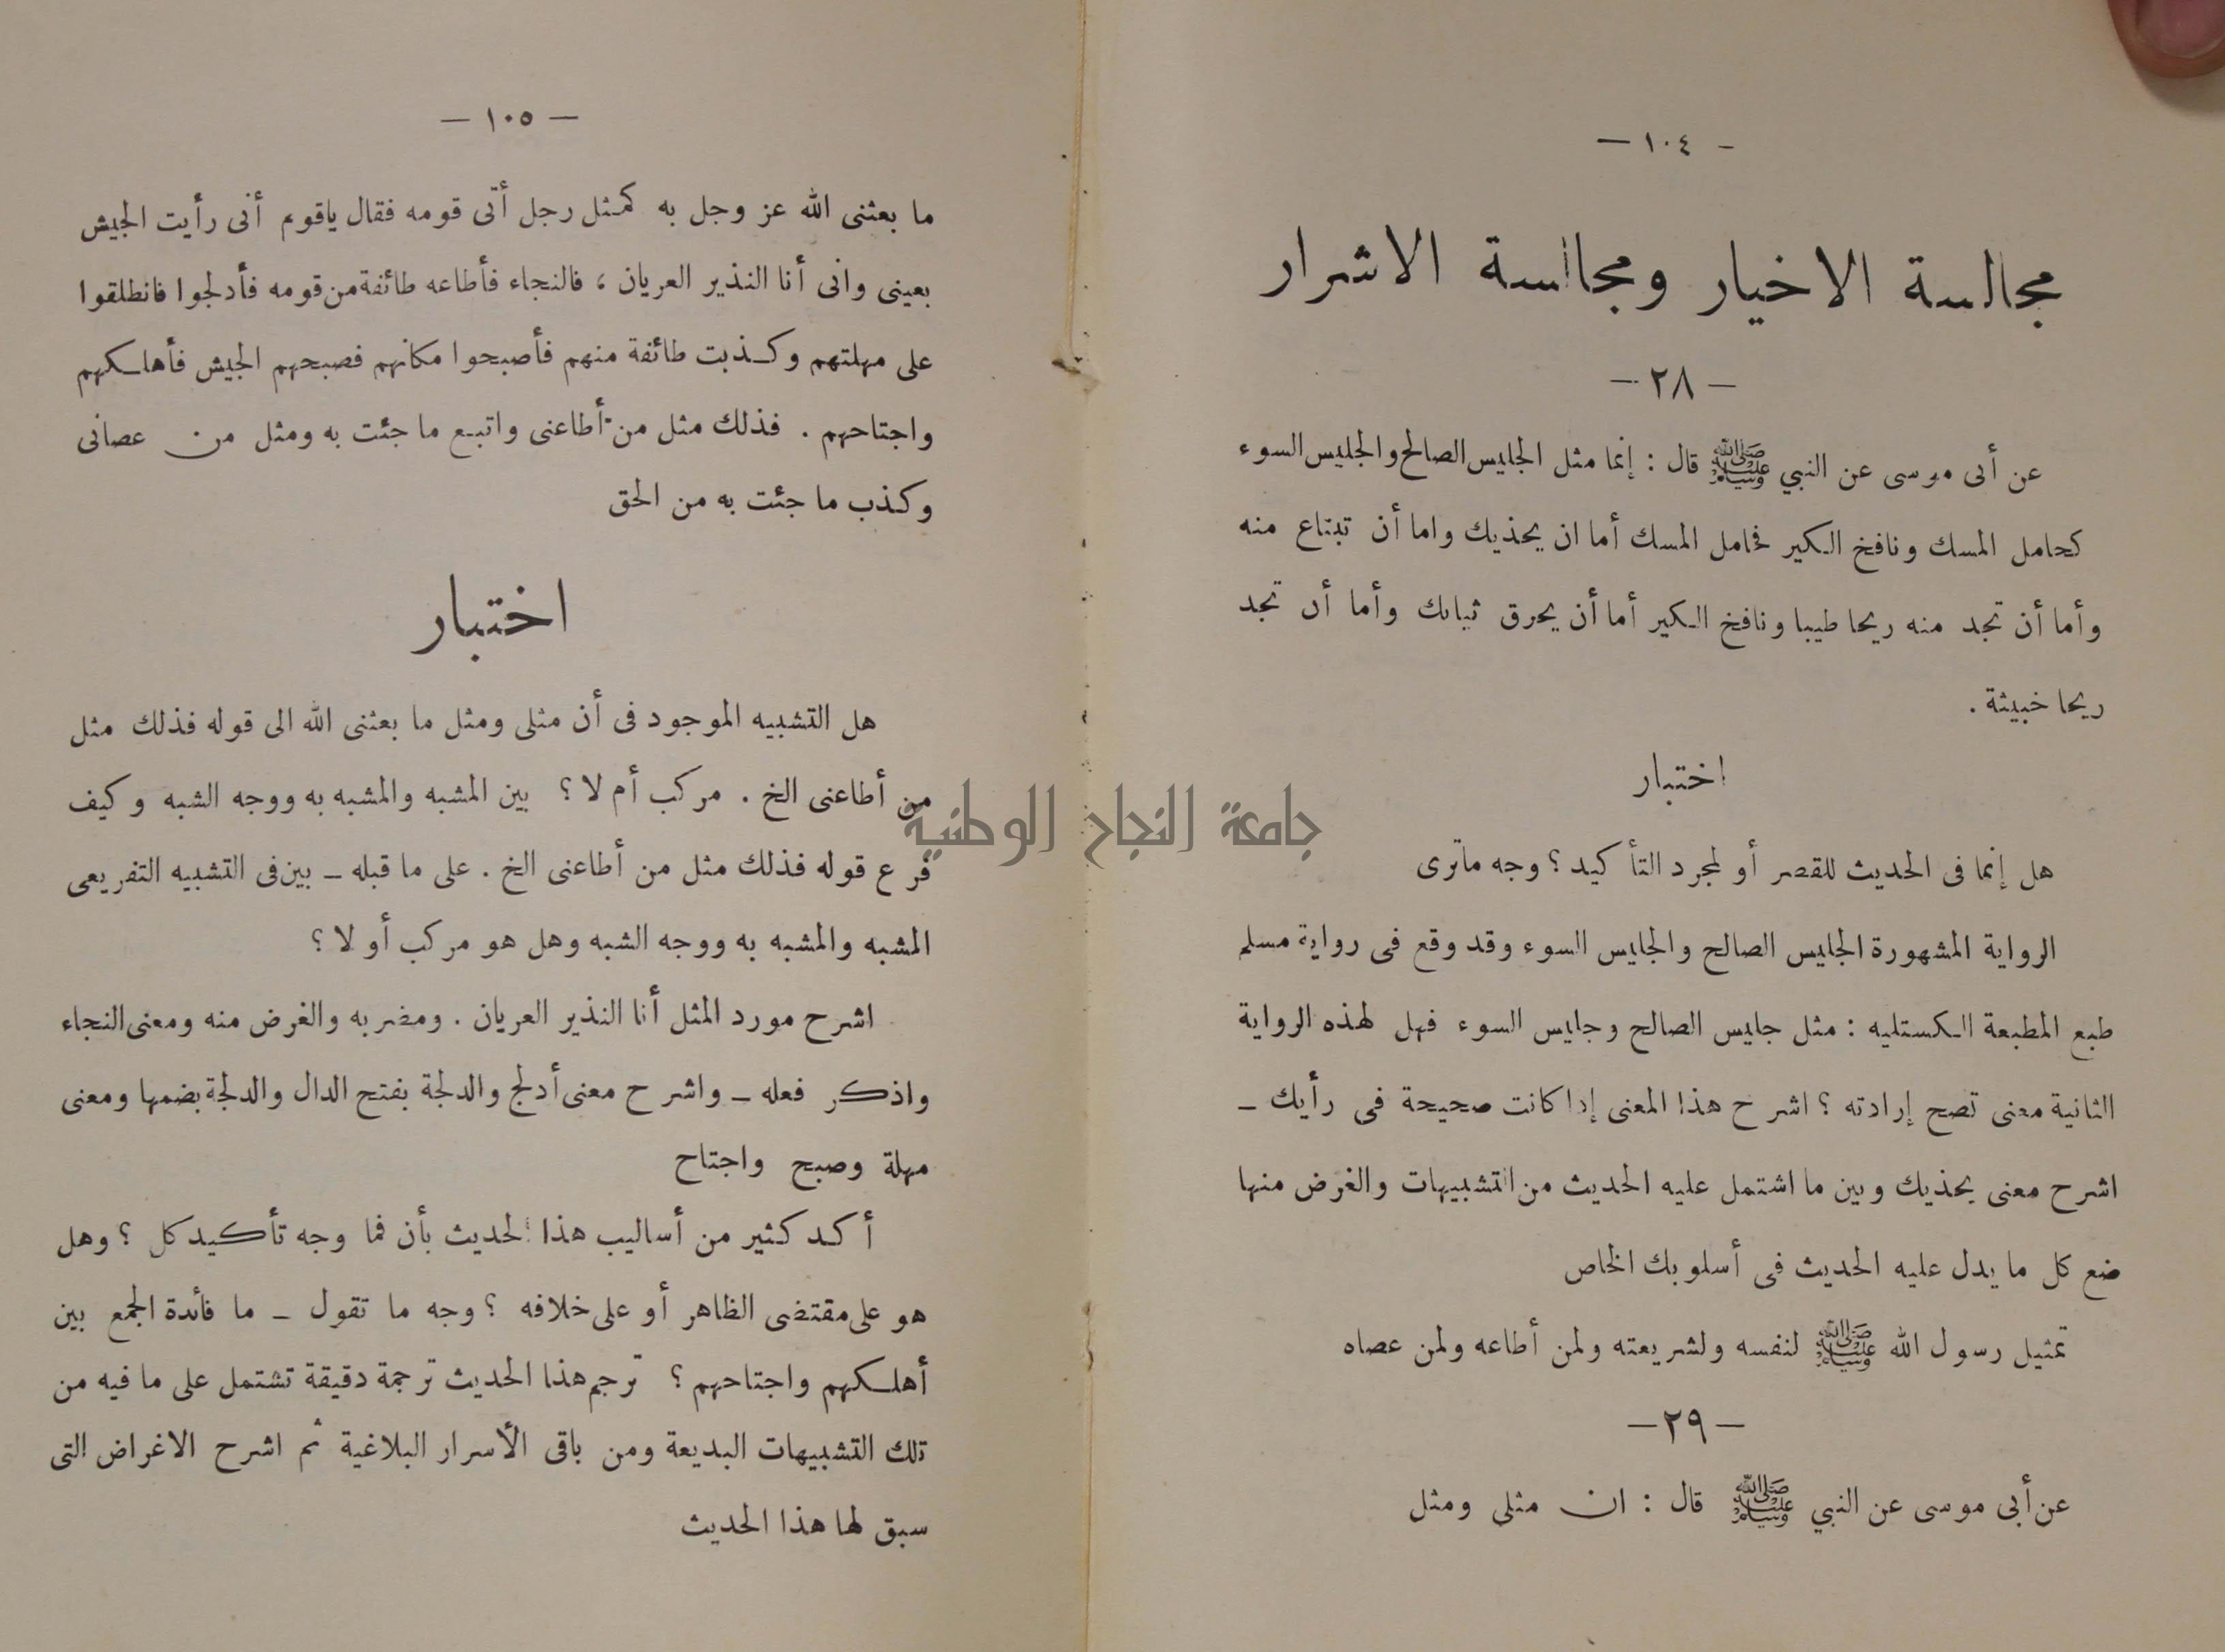 - ١٠٤ -
مجالسة الاخيار ومجالسة الاشرار
- ٢٨ -
عن أبى موسى عن النبي ﷺ قال : إنما مثل الجليس الصالح والجليس السوء
كحامل المسك ونافخ الكير فحامل المسك أما ان يحذيك واما أن تبتاع منه
وأما أن تجد منه ريحا طيبا ونافخ الكير أما أن يحرق ثيابك وأما أن تجد
ريحا خبيثة .
اختبار
هل إنما فى الحديث للقصر أو لمجرد التأكيد ؟ وجه ماترى
الرواية المشهورة الجليس الصالح والجليس السوء وقد وقع فى رواية مسلم
طبع المطبعة الكستليه : مثل جليس الصالح وجليس السوء فهل لهذه الرواية
الثانية معنى تصح إرادته ؟ اشرح هذا المعنى إذا كانت صحيحة فى رأيك -
اشرح معنى يحذيك وبين ما اشتمل عليه الحديث من التشبيهات والغرض منها
ضع كل ما يدل عليه الحديث فى أسلوبك الخاص
تمثيل رسول الله ﷺ لنفسه ولشريعته ولمن أطاعه ولمن عصاه
- ٢٩ -
عن أبى موسى عن النبي ﷺ قال : ان مثلى ومثل
- ١٠٥ -
ما بعثنى الله عز وجل به كمثل رجل أتى قومه فقال ياقوم أنى رأيت الجيش
بعينى وانى أنا النذير العريان ، فالنجاء فأطاعه طائفة من قومه فأدلجوا فانطلقوا
على مهلتهم وكذبت طائفة منهم فأصبحوا مكانهم فصبحهم الجيش فأهلكهم
واجتاحهم . فذلك مثل من أطاعنى واتبع ما جئت به ومثل من عصانى
وكذب ما جئت به من الحق
اختبار
هل التشبيه الموجود فى أن مثلى ومثل ما بعثنى الله الى قوله فذلك مثل
من أطاعنى الخ . مركب أم لا ؟ بين المشبه والمشبه به ووجه الشبه وكيف
فرع قوله فذلك مثل من أطاعنى الخ . على ما قبله - بين فى التشبيه التفريعى
المشبه والمشبه به ووجه الشبه وهل هو مركب أو لا ؟
اشرح مورد المثل أنا النذير العريان . ومضربه والغرض منه ومعنى النجاء
واذكر فعله - واشرح معنى أدلج والدلجة بفتح الدال والدلجة بضمها ومعنى
مهلة وصبح واجتاح
أكد كثير من أساليب هذا الحديث بأن فما وجه تأكيد كل ؟ وهل
هو على مقتضى الظاهر أو على خلافه ؟ وجه ما تقول - ما فائدة الجمع بين
أهلكهم واجتاحهم ؟ ترجم هذا الحديث ترجمة دقيقة تشتمل على ما فيه من
تلك التشبيهات البديعة ومن باقى الأسرار البلاغية ثم اشرح الاغراض التى
سبق لها هذا الحديث
جامعة النجاح الوطنية